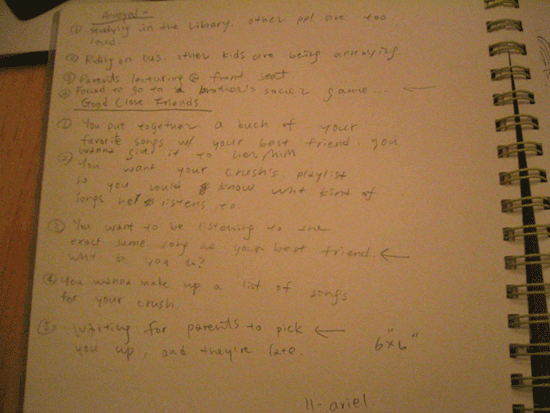 Annoyed -
① Studying in the library. other ppl are too
loud.
② Riding on bus. other kids are being annoying.
③ Parents lecturing @ front seat
④ Forced to go to a brother's soccer game... ←
Good Close Friends
① You put together a buch of your
favorite songs w/ your best friend. you
wanna give it to her/him
② You want your crush's playlist
so you would know wht kind of
songs he listens to.
③ You want to be listening to the
exact same song as your best friend. ←
wht do you do?
④ You wanna make up a list of songs
for your crush.
⑤ Waiting for parents to pick ←
you up, and they're late.
6"x6"
11- ariel.